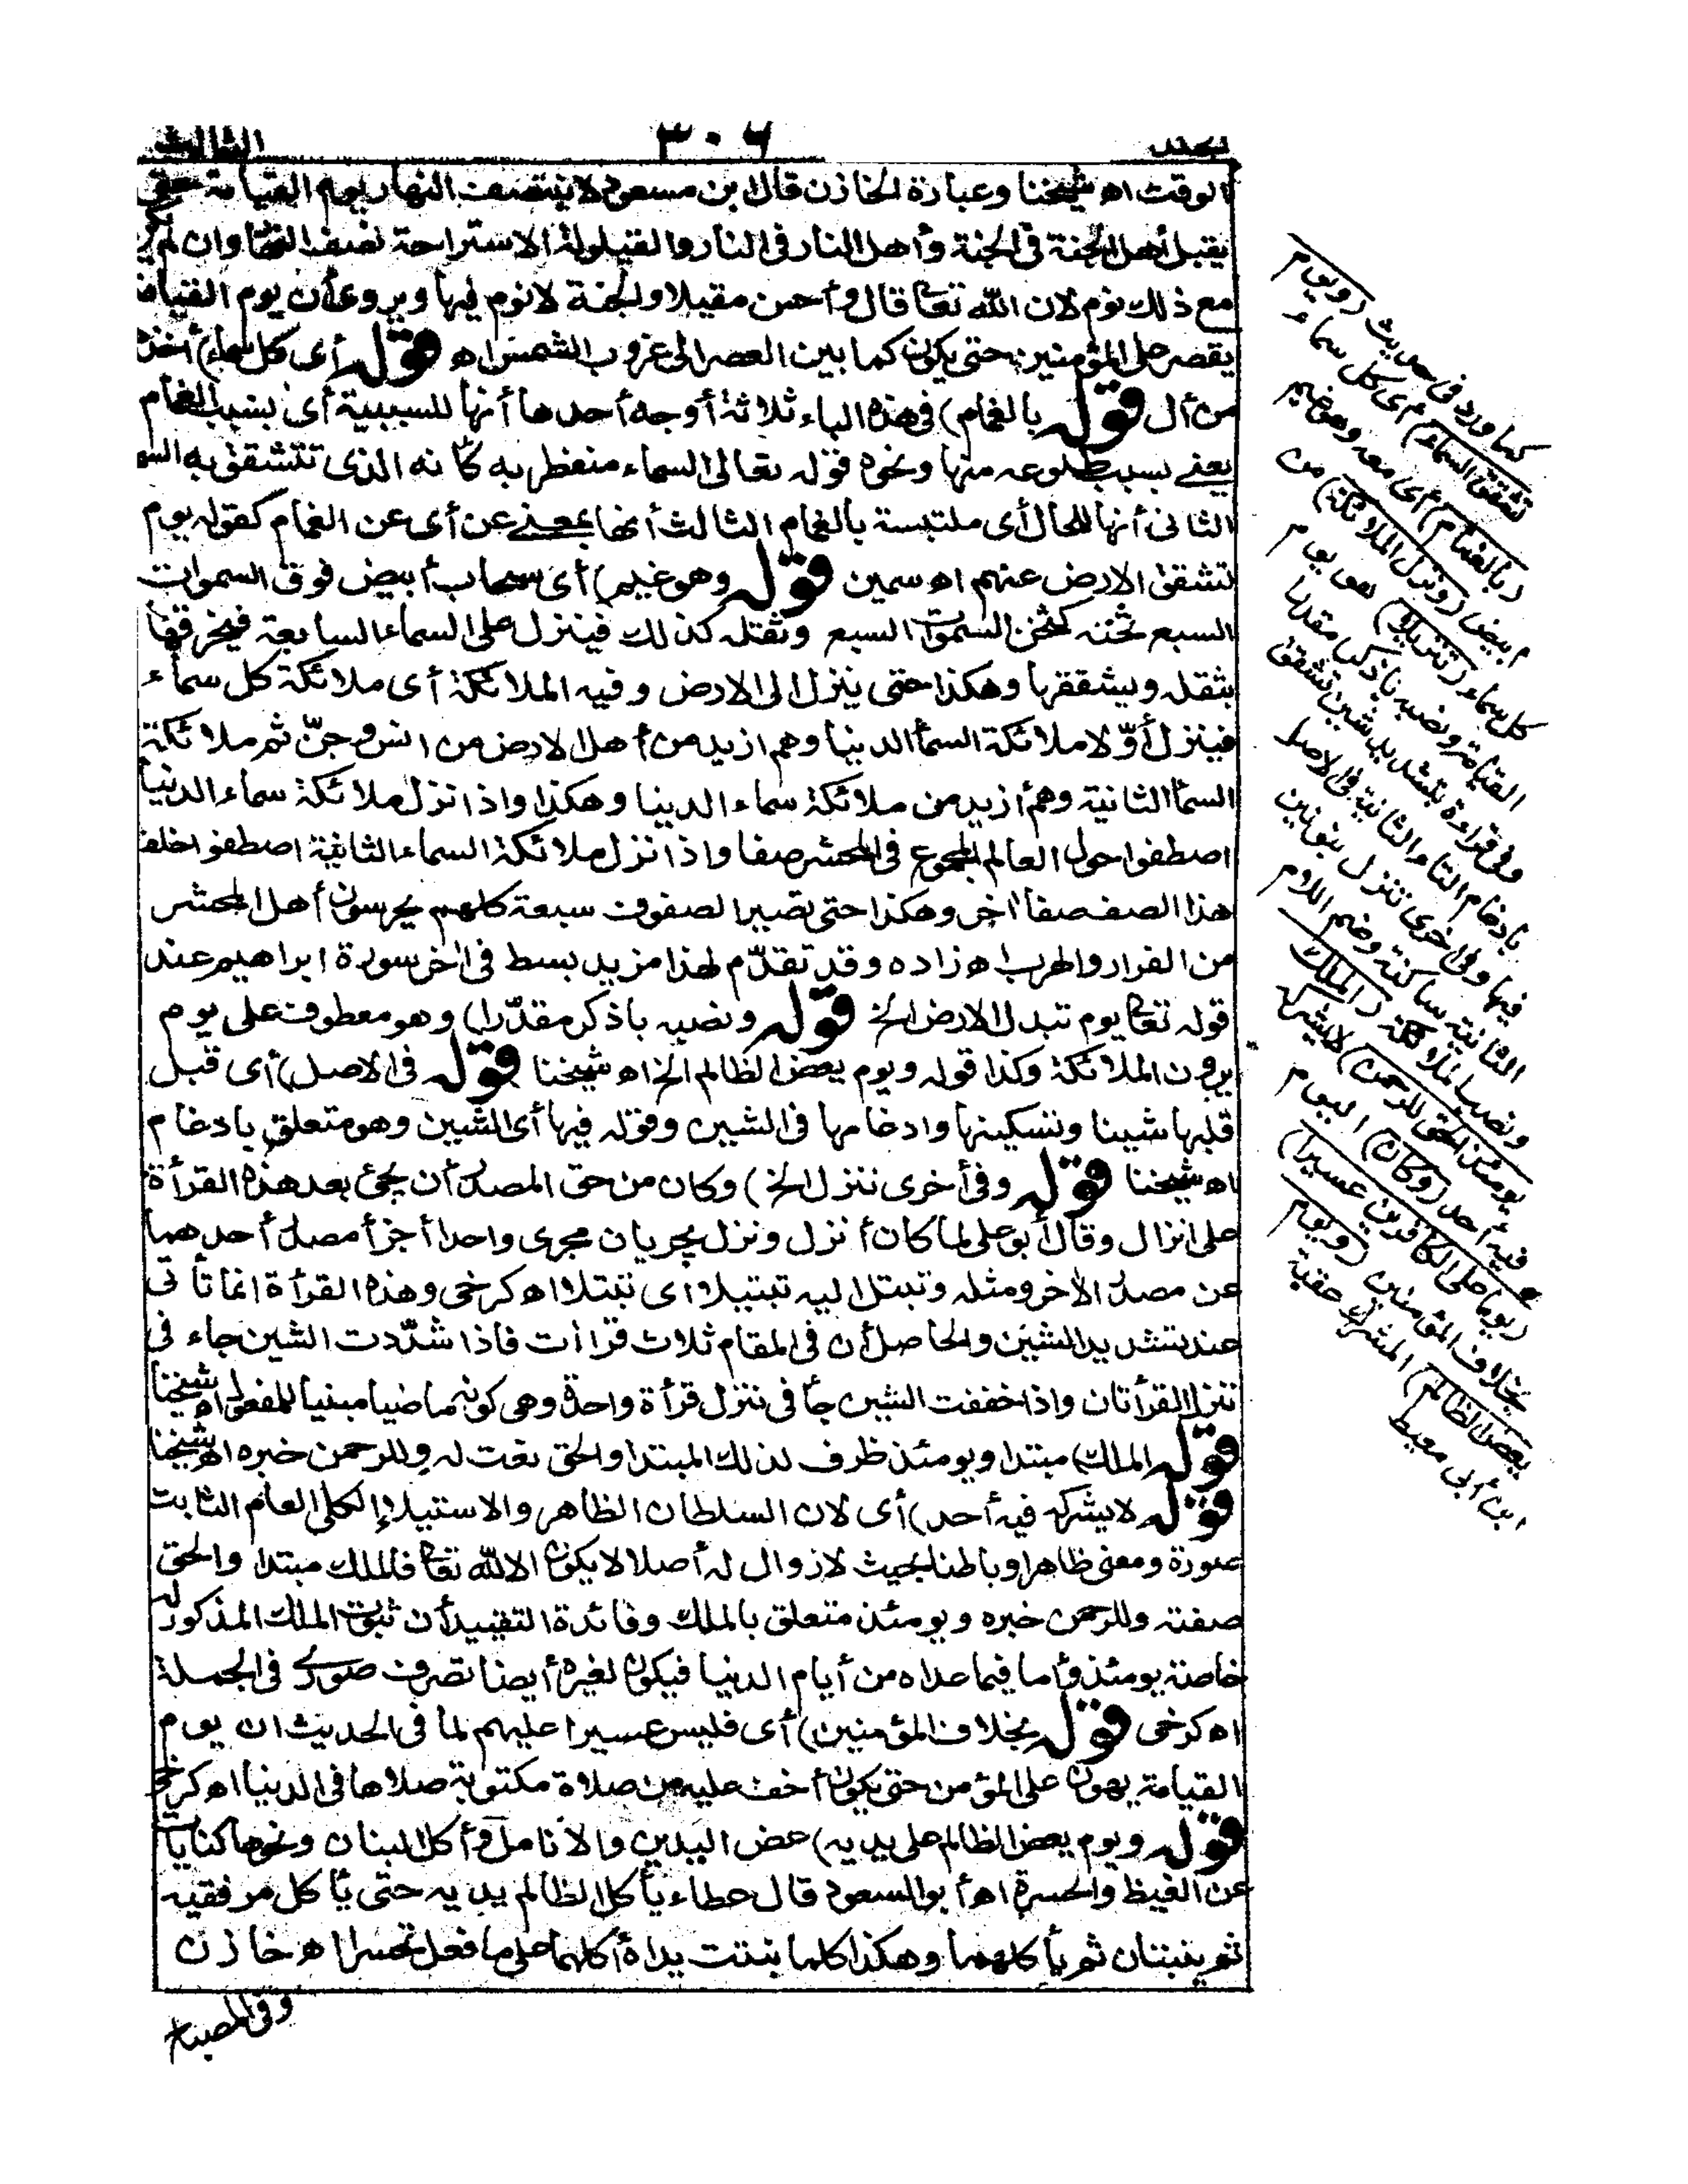 الجلد ٣٠٦ الثالث
الوقت اه شيخنا وعبارة الخازن قال ابن مسعود لا ينتصف النهار يوم القيامة حتى
يقيل أهل الجنة فى الجنة وأهل النار فى النار والقيلولة الاستراحة نصف النهار وان لم يكن
مع ذلك نوم لان الله تعا قال وأحسن مقيلا والجنة لا نوم فيها ويروى أن يوم القيامة
يقصر على المؤمنين حتى يكون كما بين العصر الى غروب الشمس اه قوله أى كل سماء) أخذه
من أل قوله بالغمام) فى هذه الباء ثلاثة أوجه أحدها أنها للسببية أى بسبب الغمام
يعنے بسبب طلوعه منها ونحوه قوله تعالى السماء منفطر به كأنه الذى تتشقق به السماء
الثانى أنها للحال أى ملتبسة بالغمام الثالث أنها بمعنے عن أى عن الغمام كقوله يوم
تشقق الارض عنهم اه سمين قوله وهو غيم) أى سحاب أبيض فوق السموات
السبع ثخنه كثخن السموات السبع وثقله كذلك فينزل على السماء السابعة فيخرقها
بثقله ويشققها وهكذا حتى ينزل الى الارض وفيه الملائكة أى ملائكة كل سماء
فينزل أوّلا ملائكة السماء الدنيا وهم ازيد من أهل الارض من انس وجنّ ثم ملائكة
السماء الثانية وهم أزيد من ملائكة سماء الدنيا وهكذا واذا نزل ملائكة سماء الدنيا
اصطفوا حول العالم المجموع فى المحشر صفا واذا نزل ملائكة السماء الثانية اصطفوا خلف
هذا الصف صفا آخر وهكذا حتى تصير الصفوف سبعة كلهم يحرسون أهل المحشر
من الفرار والهرب اه زاده وقد تقدّم لهذا مزيد بسط فى آخر سورة ابراهيم عند
قوله تعا يوم تبدل الارض الخ قوله ونصبه باذكر مقدّرا) وهو معطوف على يوم
يرون الملائكة وكذا قوله ويوم يعض الظالم الخ اه شيخنا قوله فى الاصل) أى قبل
قلبها شينا وتسكينها وادغامها فى الشين وقوله فيها أى الشين وهو متعلق بادغام
اه شيخنا قوله وفى أخرى ننزل الخ) وكان من حق المصدر أن يجئ بعد هذه القرأة
على انزال وقال أبو على لما كان أنزل ونزل يجريان مجرى واحدا أجزأ مصدر أحدهما
عن مصدر الآخر ومثله وتبتل اليه تبتيلا أى تبتلا اه كرخى وهذه القرأة انما تأتى
عند تشديد الشين والحاصل أن فى المقام ثلاث قراآت فاذا شدّدت الشين جاء فى
ننزل القرأتان واذا خففت الشين جاء فى ننزل قرأة واحدة وهى كونه ماضيا مبنيا للمفعول اه شيخنا
قوله الملك) مبتدا ويومئذ ظرف لذلك المبتدا والحق نعت له وللرحمن خبره اه شيخنا
قوله لا يشركه فيه أحد) أى لان السلطان الظاهر والاستيلاء الكلى العام الثابت
صورة ومعنى ظاهرا وباطنا بحيث لا زوال له أصلا لا يكون الا لله تعا فالملك مبتدا والحق
صفته وللرحمن خبره ويومئذ متعلق بالملك وفائدة التقييد أن ثبوت الملك المذكور له
خاصة يومئذ وأما فيما عداه من أيام الدنيا فيكون لغيره أيضا تصرف صورى فى الجملة
اه كرخى قوله بخلاف المؤمنين) أى فليس عسيرا عليهم لما فى الحديث ان يوم
القيامة يهون على المؤمن حتى يكون أخف عليه من صلاة مكتوبة صلاها فى الدنيا اه كرخى
قوله ويوم يعض الظالم على يديه) عض اليدين والانامل وأكل البنان ونحوها كنايات
عن الغيظ والحسرة اه أبو السعود قال عطاء يأكل الظالم يديه حتى يأكل مرفقيه
ثم ينبتان ثم يأكلهما وهكذا كلما نبتت يداه أكلهما على ما فعل تحسرا اه خازن
وفى المصباح
كما ورد فى حديث (ويوم
تشقق السماء) أى كل سماء
(بالغمام) أى معه وهو غيم
أبيض (ونزل الملائكة) من
كل سماء (تنزيلا) هو يوم
القيامة ونصبه باذكر مقدرا
وفى قراءة بتشديد شين تشقق
بادغام التاء الثانية فى الاصل
فيها وفى أخرى ننزل بنونين
الثانية ساكنة وضم اللام
ونصب الملائكة (الملك
يومئذ الحق للرحمن) لا يشركه
فيه أحد (وكان) اليوم
(يوما على الكافرين عسيرا)
بخلاف المؤمنين (ويوم
يعض الظالم) المشرك عقبة
ابن أبى معيط